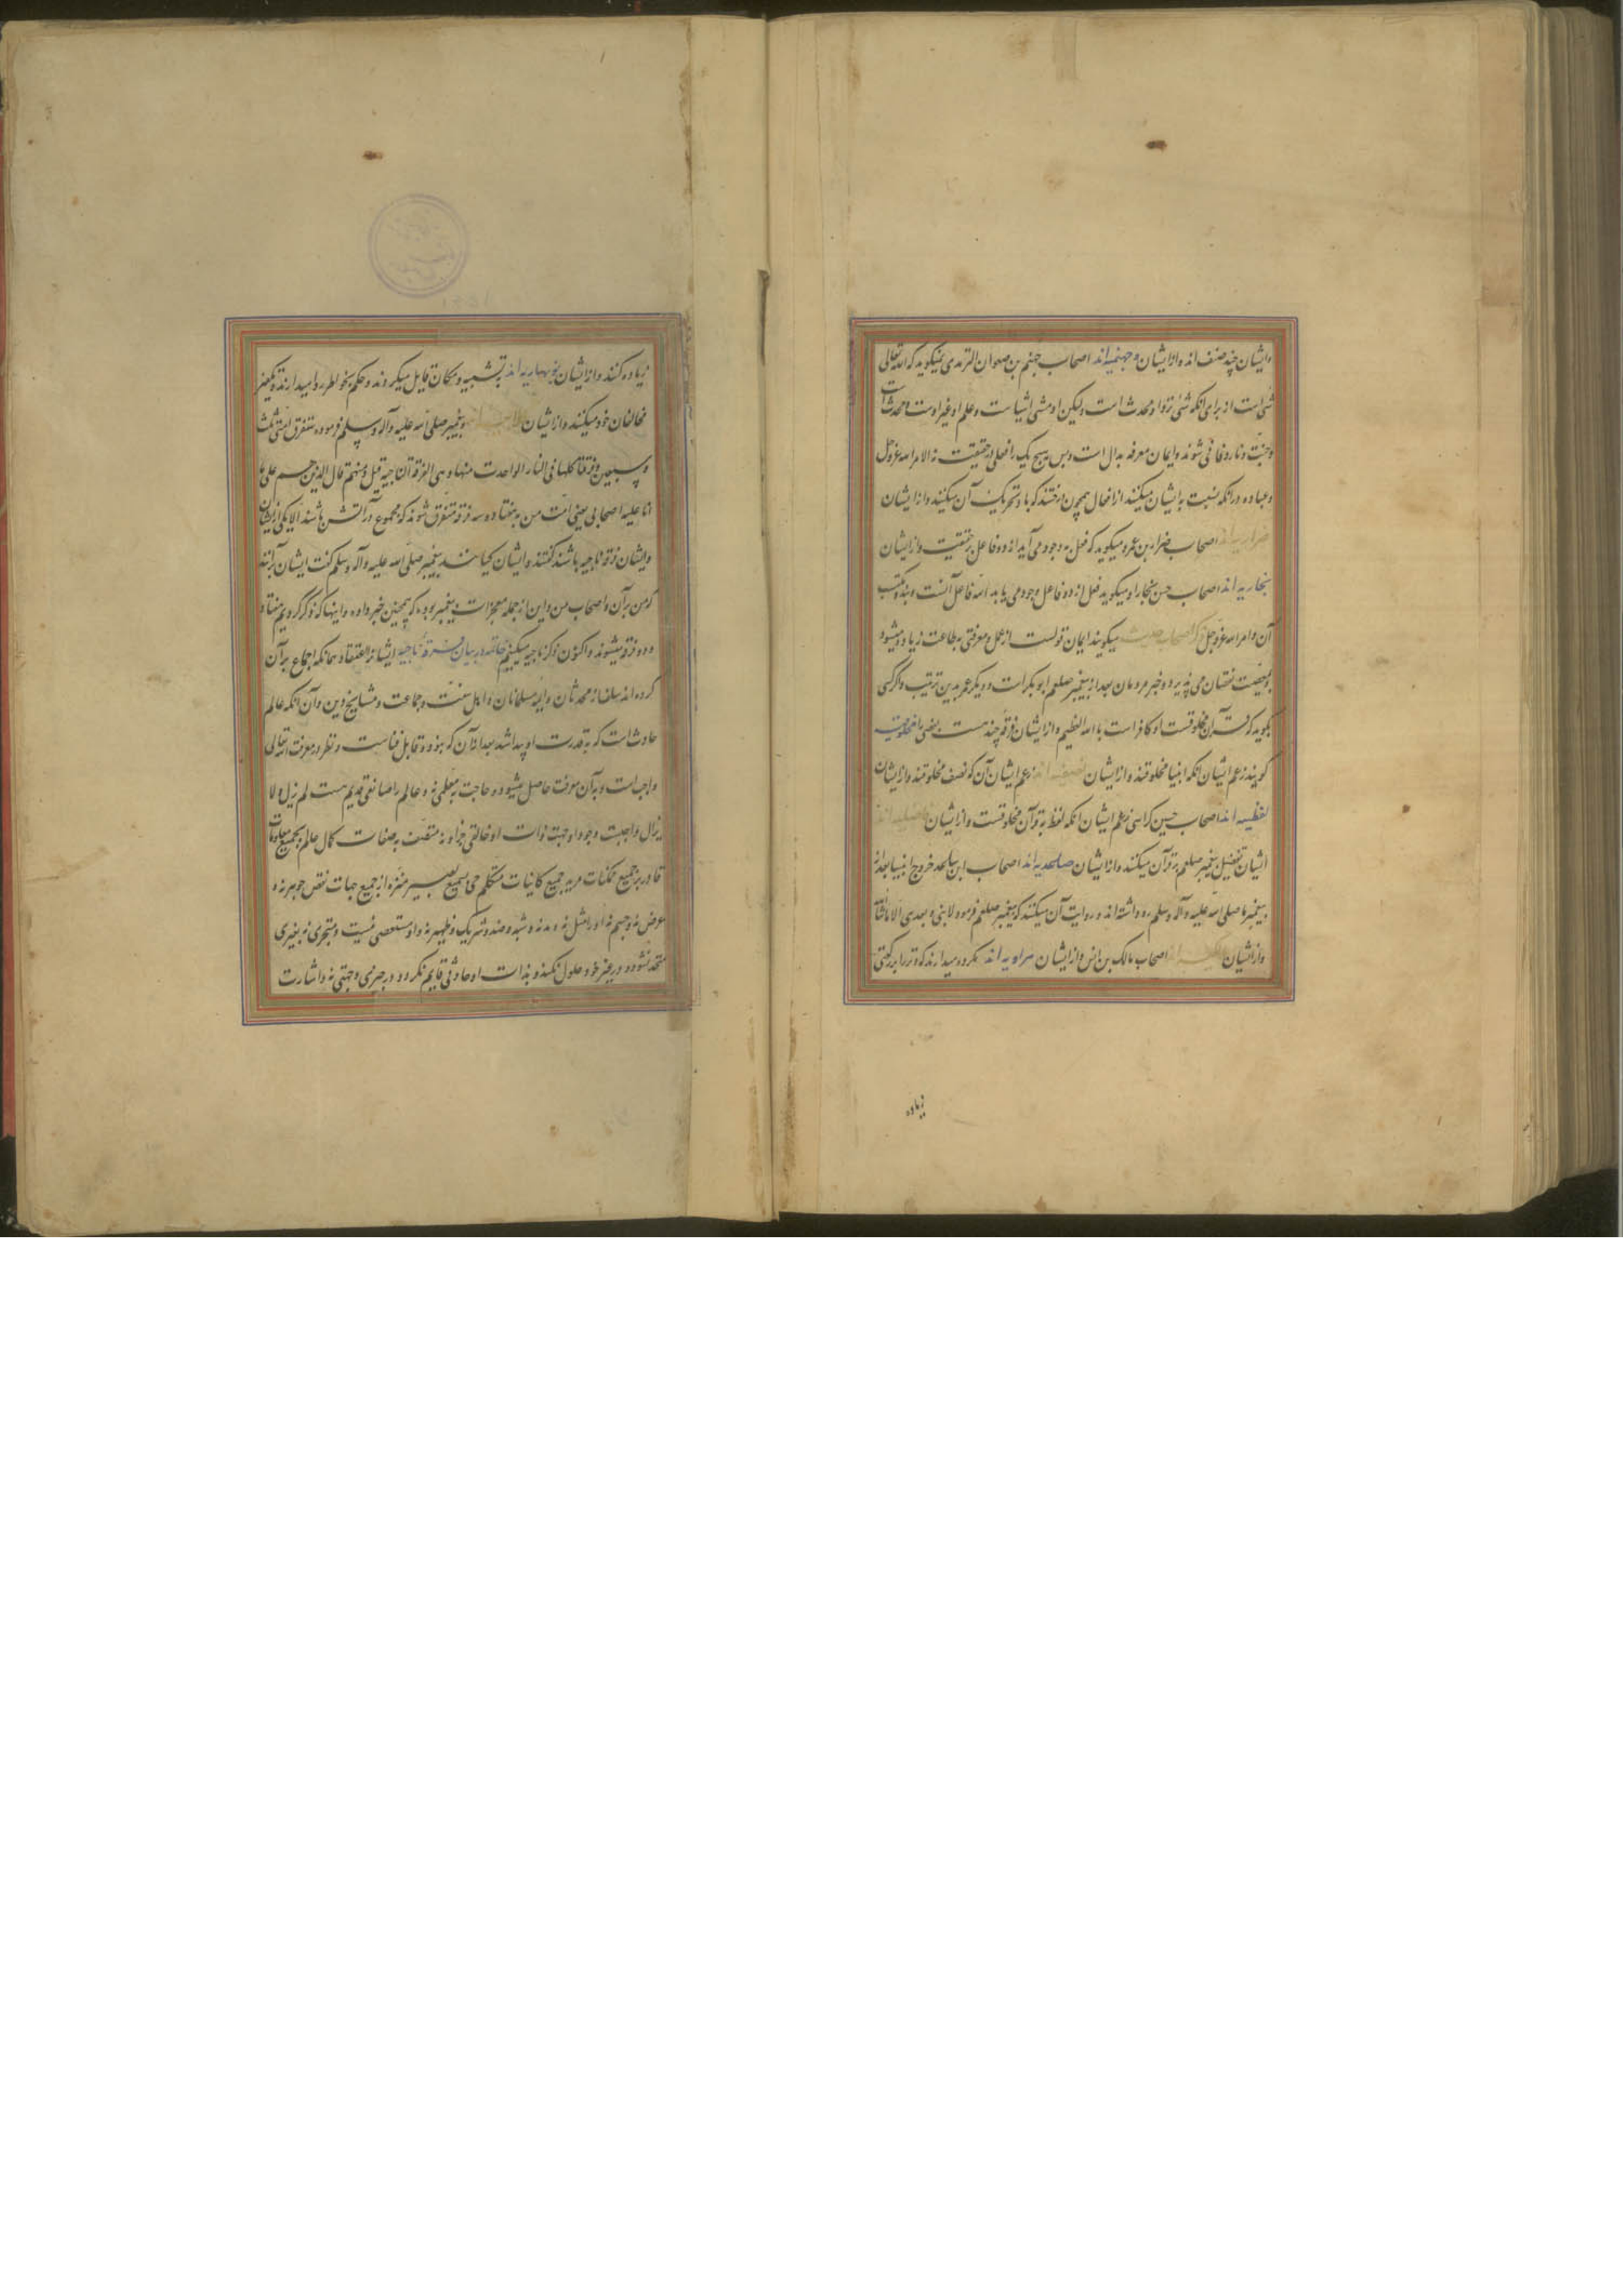 وایشان چند صنف اند و از ایشان جهمیه اند اصحاب جهم بن صفوان الترمدی میکوید که الله تعالی
شی است از برای انکه شی نزد او محدث است ولیکن او مشی اشیاست و علم او غیر اوست و محدث است
و جنت و نار و فانی شوند و ایمان معرفه بدل است و بس هیچ یک را فعلی در حقیقت نه الا مر الله عز وجل
و عباده در انکه نسبت به ایشان میکنند از افعال همچون درختند که باد تحریک آن میکنند و از ایشان
ضراریه اند اصحاب ضرار بن عمرو میکوید که فعل به وجود می آید از دو فاعل بحقیقت و از ایشان
نجاریه اند اصحاب حسن نجار او میکوید فعل از دو فاعل وجود می یابد الله فاعل آنست و بنده مکتسب
آن و امر الله عز وجل اصحاب حدیث میکویند ایمان قولست از عمل و معرفتی بطاعت زیاده میشود
و بمعصیت نقصان می پذیرد و خیر مردمان بعد از پیغمبر صلعم ابو بکر است و دیکر عمر بدین ترتیب و اکر کسی
بکوید که قرآن مخلوقست او کافر است بالله العظیم و از ایشان فرقه چند هست بعضی
کویند زعم ایشان انکه انبیا مخلوقند و از ایشان نصفیه اند زعم ایشان آن که نصف مخلوقند و از ایشان
لفظیه اند اصحاب حسین کرابسی زعم ایشان انکه لفظ به قرآن مخلوقست و از ایشان فاضلیه اند
ایشان تفضیل پیغمبر صلعم بر قرآن میکنند و از ایشان صلحدیه اند اصحاب ابن صلحد خروج انبیا بعد از
پیغمبر ما صلی الله علیه و آله وسلم روا داشته اند و روایت آن میکنند که پیغمبر صلعم فرمود لا نبی بعدی الا ماشاالله
و از ایشان مالکیه اند اصحاب مالک بن انس و از ایشان مراویه اند مکروه میدارند که وتر را بر رکعتی
زیاده
زیاده کنند و از ایشان نوبهاریه اند به تشبیه و مکان قایل میکردند و حکم بخواطر روا میدارند و تکفیر
مخالفان خود میکنند و از ایشان پیغمبر صلی الله علیه وآله وسلم فرموده ستفرق امتی ثلث
و سبعین فرقة کلها فی النار الا واحدت منها و هی الفرقة الناجیة قیل و منهم قال الذین هم علی ما
انا علیه و اصحابی یعنی امت من به هفتاد و سه فرقه متفرق شوند که مجموع در آتش باشند الا یکی از ایشان
و ایشان فرقه ناجیه باشند کفتند و ایشان کیانند پیغمبر صلی الله علیه وآله وسلم کفت ایشان آنند
که من بر آن و اصحاب من و این از جمله معجزات پیغمبر بوده که همچنین خبر داده و اینها که ذکر کردیم هفتاد
و دو فرقه میشوند و اکنون ذکر ناجیه میکنیم خاتمه در بیان فرقه ناجیه ایشانرا اعتقاد همانکه اجماع بر آن
کرده اند سلف از محدثان و ایمه مسلمانان و اهل سنت و جماعت و مشایخ دین و آن انکه عالم
حادث است که به قدرت او پیدا شد بعد از آن که نبود و قابل فناست و نظر در معرفت الله تعالی
واجب است و به آن معرفت حاصل میشود و حاجت به معلمی نه و عالم را صانعی قدیم هست لم یزل و لا
یزال واجبت وجود او بذات او خالقی جز او نه متصف به صفات کمال عالم بجمیع معلومات
قادر بر جمیع ممکنات مرید جمیع کاینات متکلم حی سمیع بصیر منزه از جمیع جهات نقص جوهر نه و
عرض نه و جسم نه او را مثل نه و ند نه و شبه و ضد و شریک و ظهیر نه و او متبعض نیست و متجزی نه بغیری
متحد نشود و در غیر خود حلول نکند و بذات او حادثی قایم نکردد در حیزی و جهتی نه و اشارت